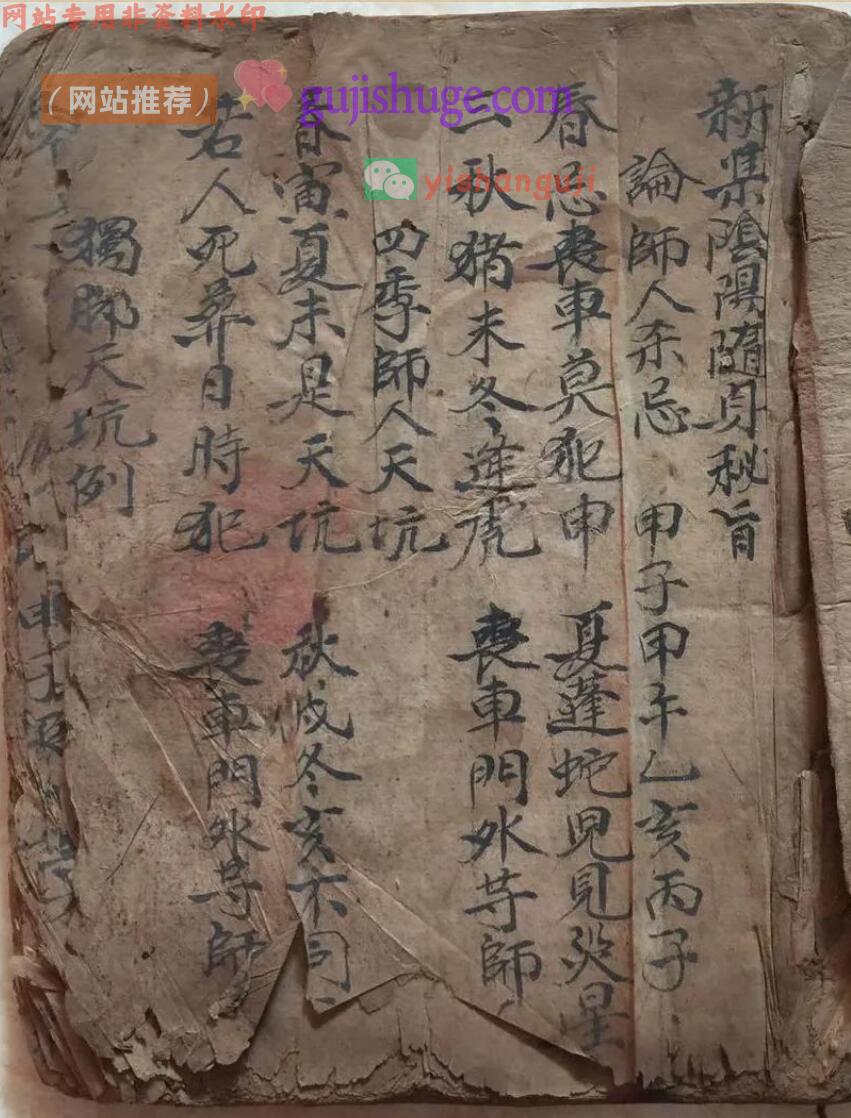 网站专用非资料水印
(网站推荐)
gujishuge.com
yishanguji
新集陰陽随身秘旨
論師人杀忌 甲子甲午乙亥丙子
春忌喪車莫犯申 夏逢蛇児見災星
三秋猪未冬逢虎 喪車門外等師
四季師人天坑
春寅夏未是天坑 秋戌冬亥不同
若人死葬日時犯 喪車門外等師
獨脚天坑例
申子